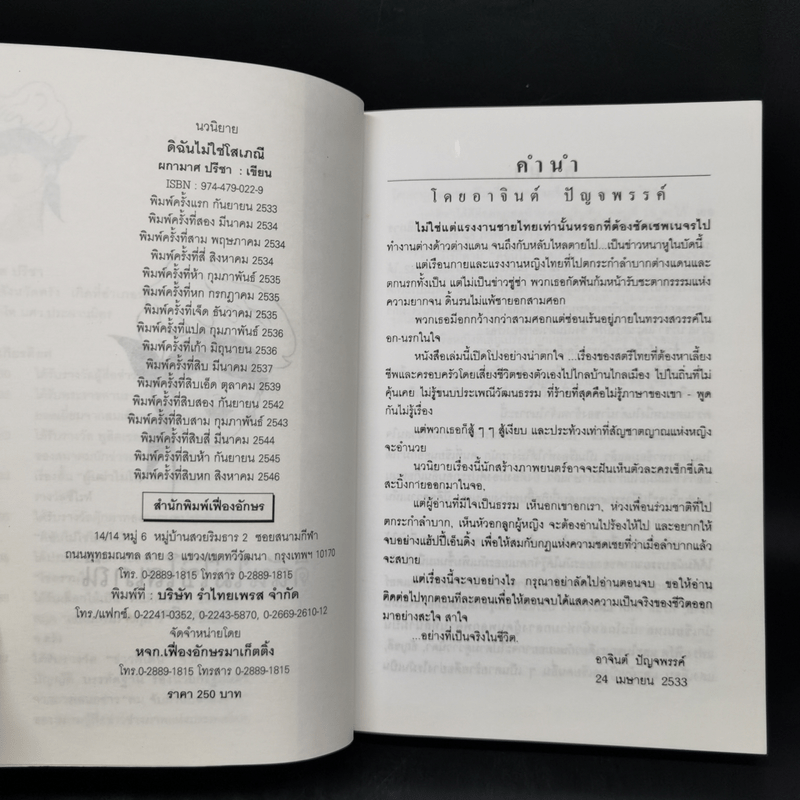 นวนิยาย
ดิฉันไม่ใช่โสเภณี
ผกามาศ ปรีชา : เขียน
ISBN : 974-479-022-9
พิมพ์ครั้งแรก กันยายน 2533
พิมพ์ครั้งที่สอง มีนาคม 2534
พิมพ์ครั้งที่สาม พฤษภาคม 2534
พิมพ์ครั้งที่สี่ สิงหาคม 2534
พิมพ์ครั้งที่ห้า กุมภาพันธ์ 2535
พิมพ์ครั้งที่หก กรกฎาคม 2535
พิมพ์ครั้งที่เจ็ด ธันวาคม 2535
พิมพ์ครั้งที่แปด กุมภาพันธ์ 2536
พิมพ์ครั้งที่เก้า มิถุนายน 2536
พิมพ์ครั้งที่สิบ มีนาคม 2537
พิมพ์ครั้งที่สิบเอ็ด ตุลาคม 2539
พิมพ์ครั้งที่สิบสอง กันยายน 2542
พิมพ์ครั้งที่สิบสาม กุมภาพันธ์ 2543
พิมพ์ครั้งที่สิบสี่ มีนาคม 2544
พิมพ์ครั้งที่สิบห้า กันยายน 2545
พิมพ์ครั้งที่สิบหก สิงหาคม 2546
สำนักพิมพ์เฟื่องอักษร
14/14 หมู่ 6 หมู่บ้านสวยริมธาร 2 ซอยสนามกีฬา
ถนนพุทธมณฑล สาย 3 แขวง/เขตทวีวัฒนา กรุงเทพฯ 10170
โทร. 0-2889-1815 โทรสาร 0-2889-1815
พิมพ์ที่ : บริษัท รำไทยเพรส จำกัด
โทร./แฟกซ์. 0-2241-0352, 0-2243-5870, 0-2669-2610-12
จัดจำหน่ายโดย
หจก.เฟื่องอักษรมาเก็ตติ้ง
โทร.0-2889-1815 โทรสาร 0-2889-1815
ราคา 250 บาท
คำนำ
โดยอาจินต์ ปัญจพรรค์
ไม่ใช่แต่แรงงานชายไทยเท่านั้นหรอกที่ต้องซัดเซพเนจรไป
ทำงานต่างด้าวต่างแดน จนถึงกับหลับไหลตายไป...เป็นข่าวหนาหูในบัดนี้
แต่เรือนกายและแรงงานหญิงไทยที่ไปตกระกำลำบากต่างแดนและ
ตกนรกทั้งเป็น แต่ไม่เป็นข่าวซู่ซ่า พวกเธอกัดฟันก้มหน้ารับชะตากรรมแห่ง
ความยากจน ดิ้นรนไม่แพ้ชายอกสามศอก
พวกเธอมีอกกว้างกว่าสามศอกแต่ซ่อนเร้นอยู่ภายในทรวงสวรรค์ใน
อก-นรกในใจ
หนังสือเล่มนี้เปิดโปงอย่างน่าตกใจ ...เรื่องของสตรีไทยที่ต้องหาเลี้ยง
ชีพและครอบครัวโดยเสี่ยงชีวิตของตัวเองไปไกลบ้านไกลเมือง ไปในถิ่นที่ไม่
คุ้นเคย ไม่รู้ขนบประเพณีวัฒนธรรม ที่ร้ายที่สุดคือไม่รู้ภาษาของเขา - พูด
กันไม่รู้เรื่อง
แต่พวกเธอก็สู้ ๆ ๆ สู้เงียบ และประท้วงเท่าที่สัญชาตญาณแห่งหญิง
จะอำนวย
นวนิยายเรื่องนี้นักสร้างภาพยนตร์อาจจะฝันเห็นตัวละครเซ็กซี่เดิน
สะบิ้งกายออกมาในจอ.
แต่ผู้อ่านที่มีใจเป็นธรรม เห็นอกเขาอกเรา, ห่วงเพื่อนร่วมชาติที่ไป
ตกระกำลำบาก, เห็นหัวอกลูกผู้หญิง จะต้องอ่านไปร้องไห้ไป และอยากให้
จบอย่างแฮ้ปปี้เอ็นดิ้ง เพื่อให้สมกับกฎแห่งความชดเชยที่ว่าเมื่อลำบากแล้ว
จะสบาย
แต่เรื่องนี้จะจบอย่างไร กรุณาอย่าลัดไปอ่านตอนจบ ขอให้อ่าน
ติดต่อไปทุกตอนทีละตอนเพื่อให้ตอนจบได้แสดงความเป็นจริงของชีวิตออก
มาอย่างสะใจ สาใจ
...อย่างที่เป็นจริงในชีวิต.
อาจินต์ ปัญจพรรค์
24 เมษายน 2533